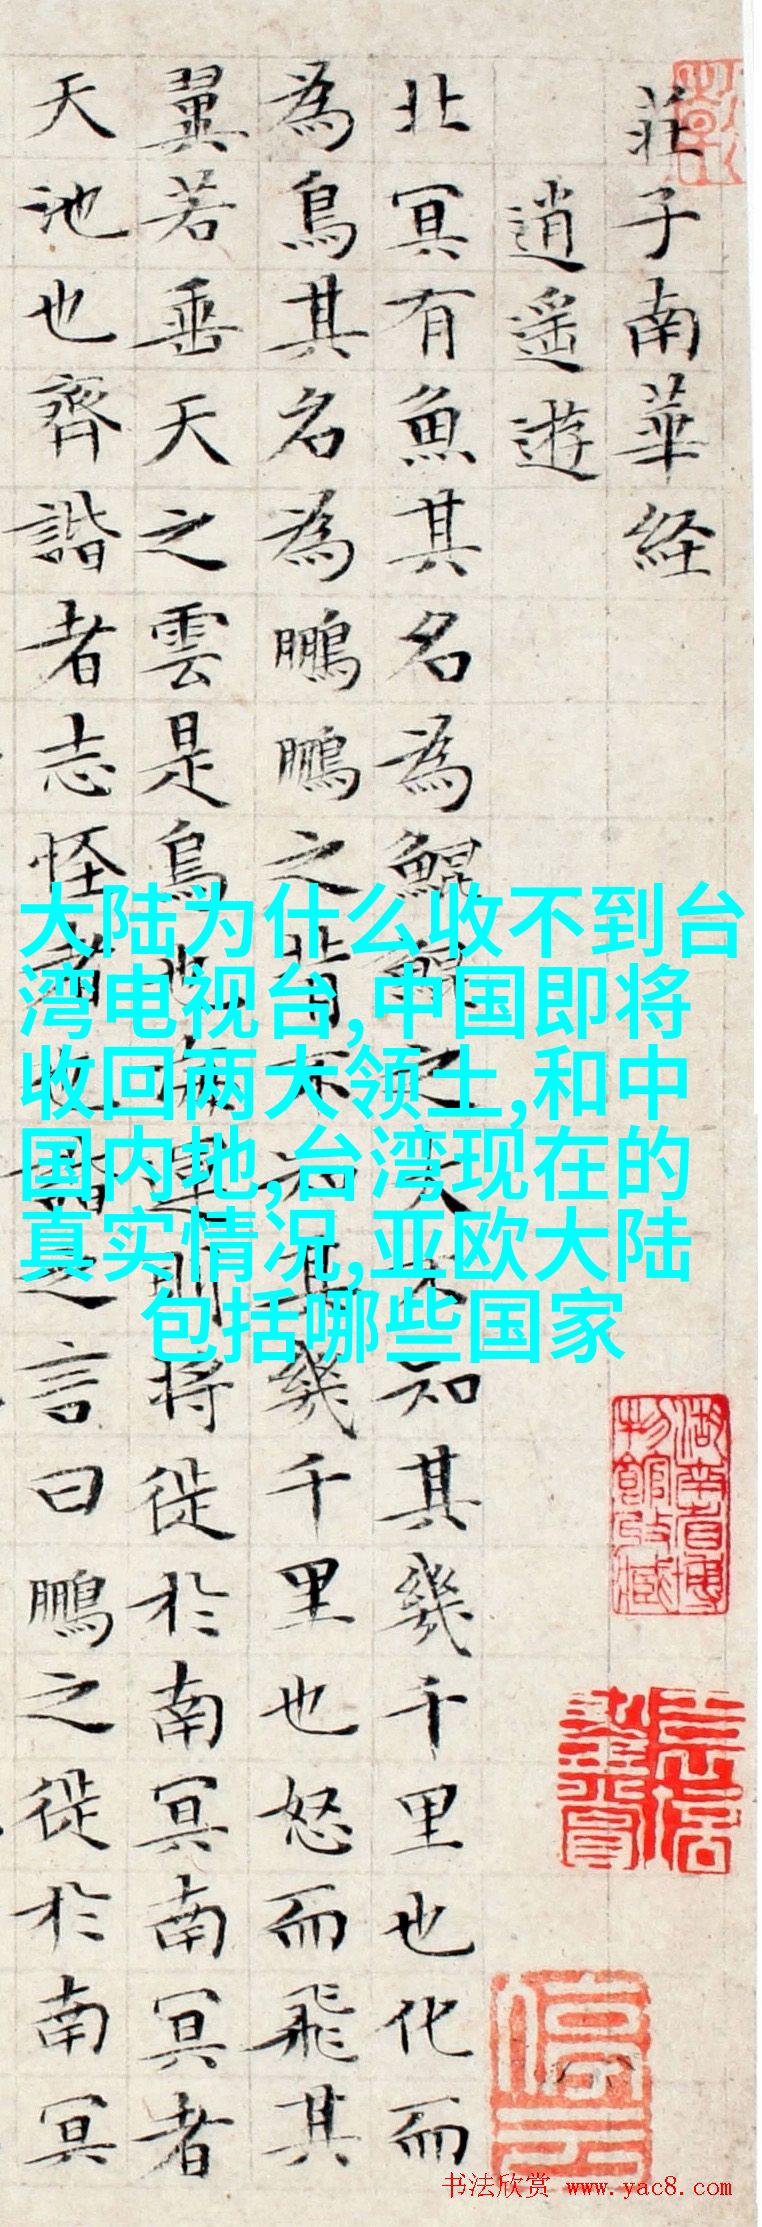 莊子南華経
逍遥遊
北冥有魚其名為鯤鯤之大不知其幾千里也化而
為鳥其名為鵬鵬之背不知其幾千里也怒而飛其
翼若垂天之雲是鳥也海運則将徙於南冥南冥者
天池也齊諧者志怪者也諧之言曰鵬之徙於南冥
大陆为什么收不到台
湾电视台,中国即将
收回两大领土,和中
国内地,台湾现在的
真实情况,亚欧大陆
包括哪些国家
湖南省博
物館收藏
书法欣赏 www.yac8.com